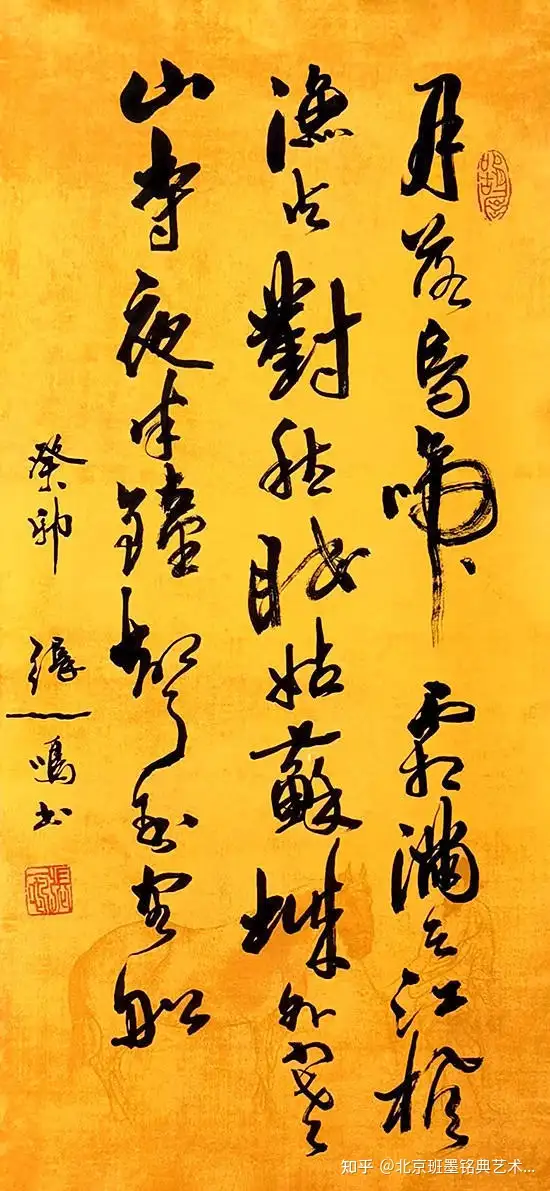 月落烏啼霜滿天江楓
漁火對愁眠姑蘇城外寒
山寺夜半鐘聲到客船
癸卯 一鳴书
知乎 @北京班墨铭典艺术...